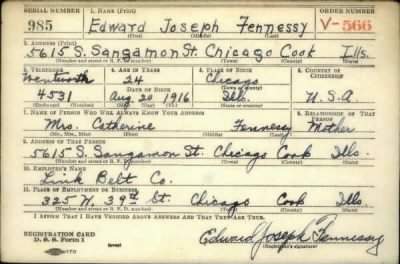 SERIAL NUMBER 1. NAME (Print) ORDER NUMBER
985 Edward Joseph Fennessy V-566
(First) (Middle) (Last)
2. ADDRESS (Print)
5615 S. Sangamon St. Chicago Cook Ills.
(Number and street or R. F. D. number) (Town) (County) (State)
3. TELEPHONE 4. AGE IN YEARS 5. PLACE OF BIRTH 6. COUNTRY OF CITIZENSHIP
Wentworth 24 Chicago
DATE OF BIRTH (Town or county)
4531 Aug. 20 1916 Ills. U.S.A
(Mo.) (Day) (Yr.) (State or country)
7. NAME OF PERSON WHO WILL ALWAYS KNOW YOUR ADDRESS 8. RELATIONSHIP OF THAT PERSON
Mrs. Catherine Fennessy Mother
(Mr., Mrs., Miss) (First) (Middle) (Last)
9. ADDRESS OF THAT PERSON
5615 S. Sangamon St. Chicago Cook Ills.
(Number and street or R. F. D. number) (Town) (County) (State)
10. EMPLOYER'S NAME
Link Belt Co.
11. PLACE OF EMPLOYMENT OR BUSINESS
325 W. 39th St. Chicago Cook Ills.
(Number and street or R. F. D. number) (Town) (County) (State)
I AFFIRM THAT I HAVE VERIFIED ABOVE ANSWERS AND THAT THEY ARE TRUE.
REGISTRATION CARD
D. S. S. Form 1 (over) Edward Joseph Fennessy
(Registrant's signature)